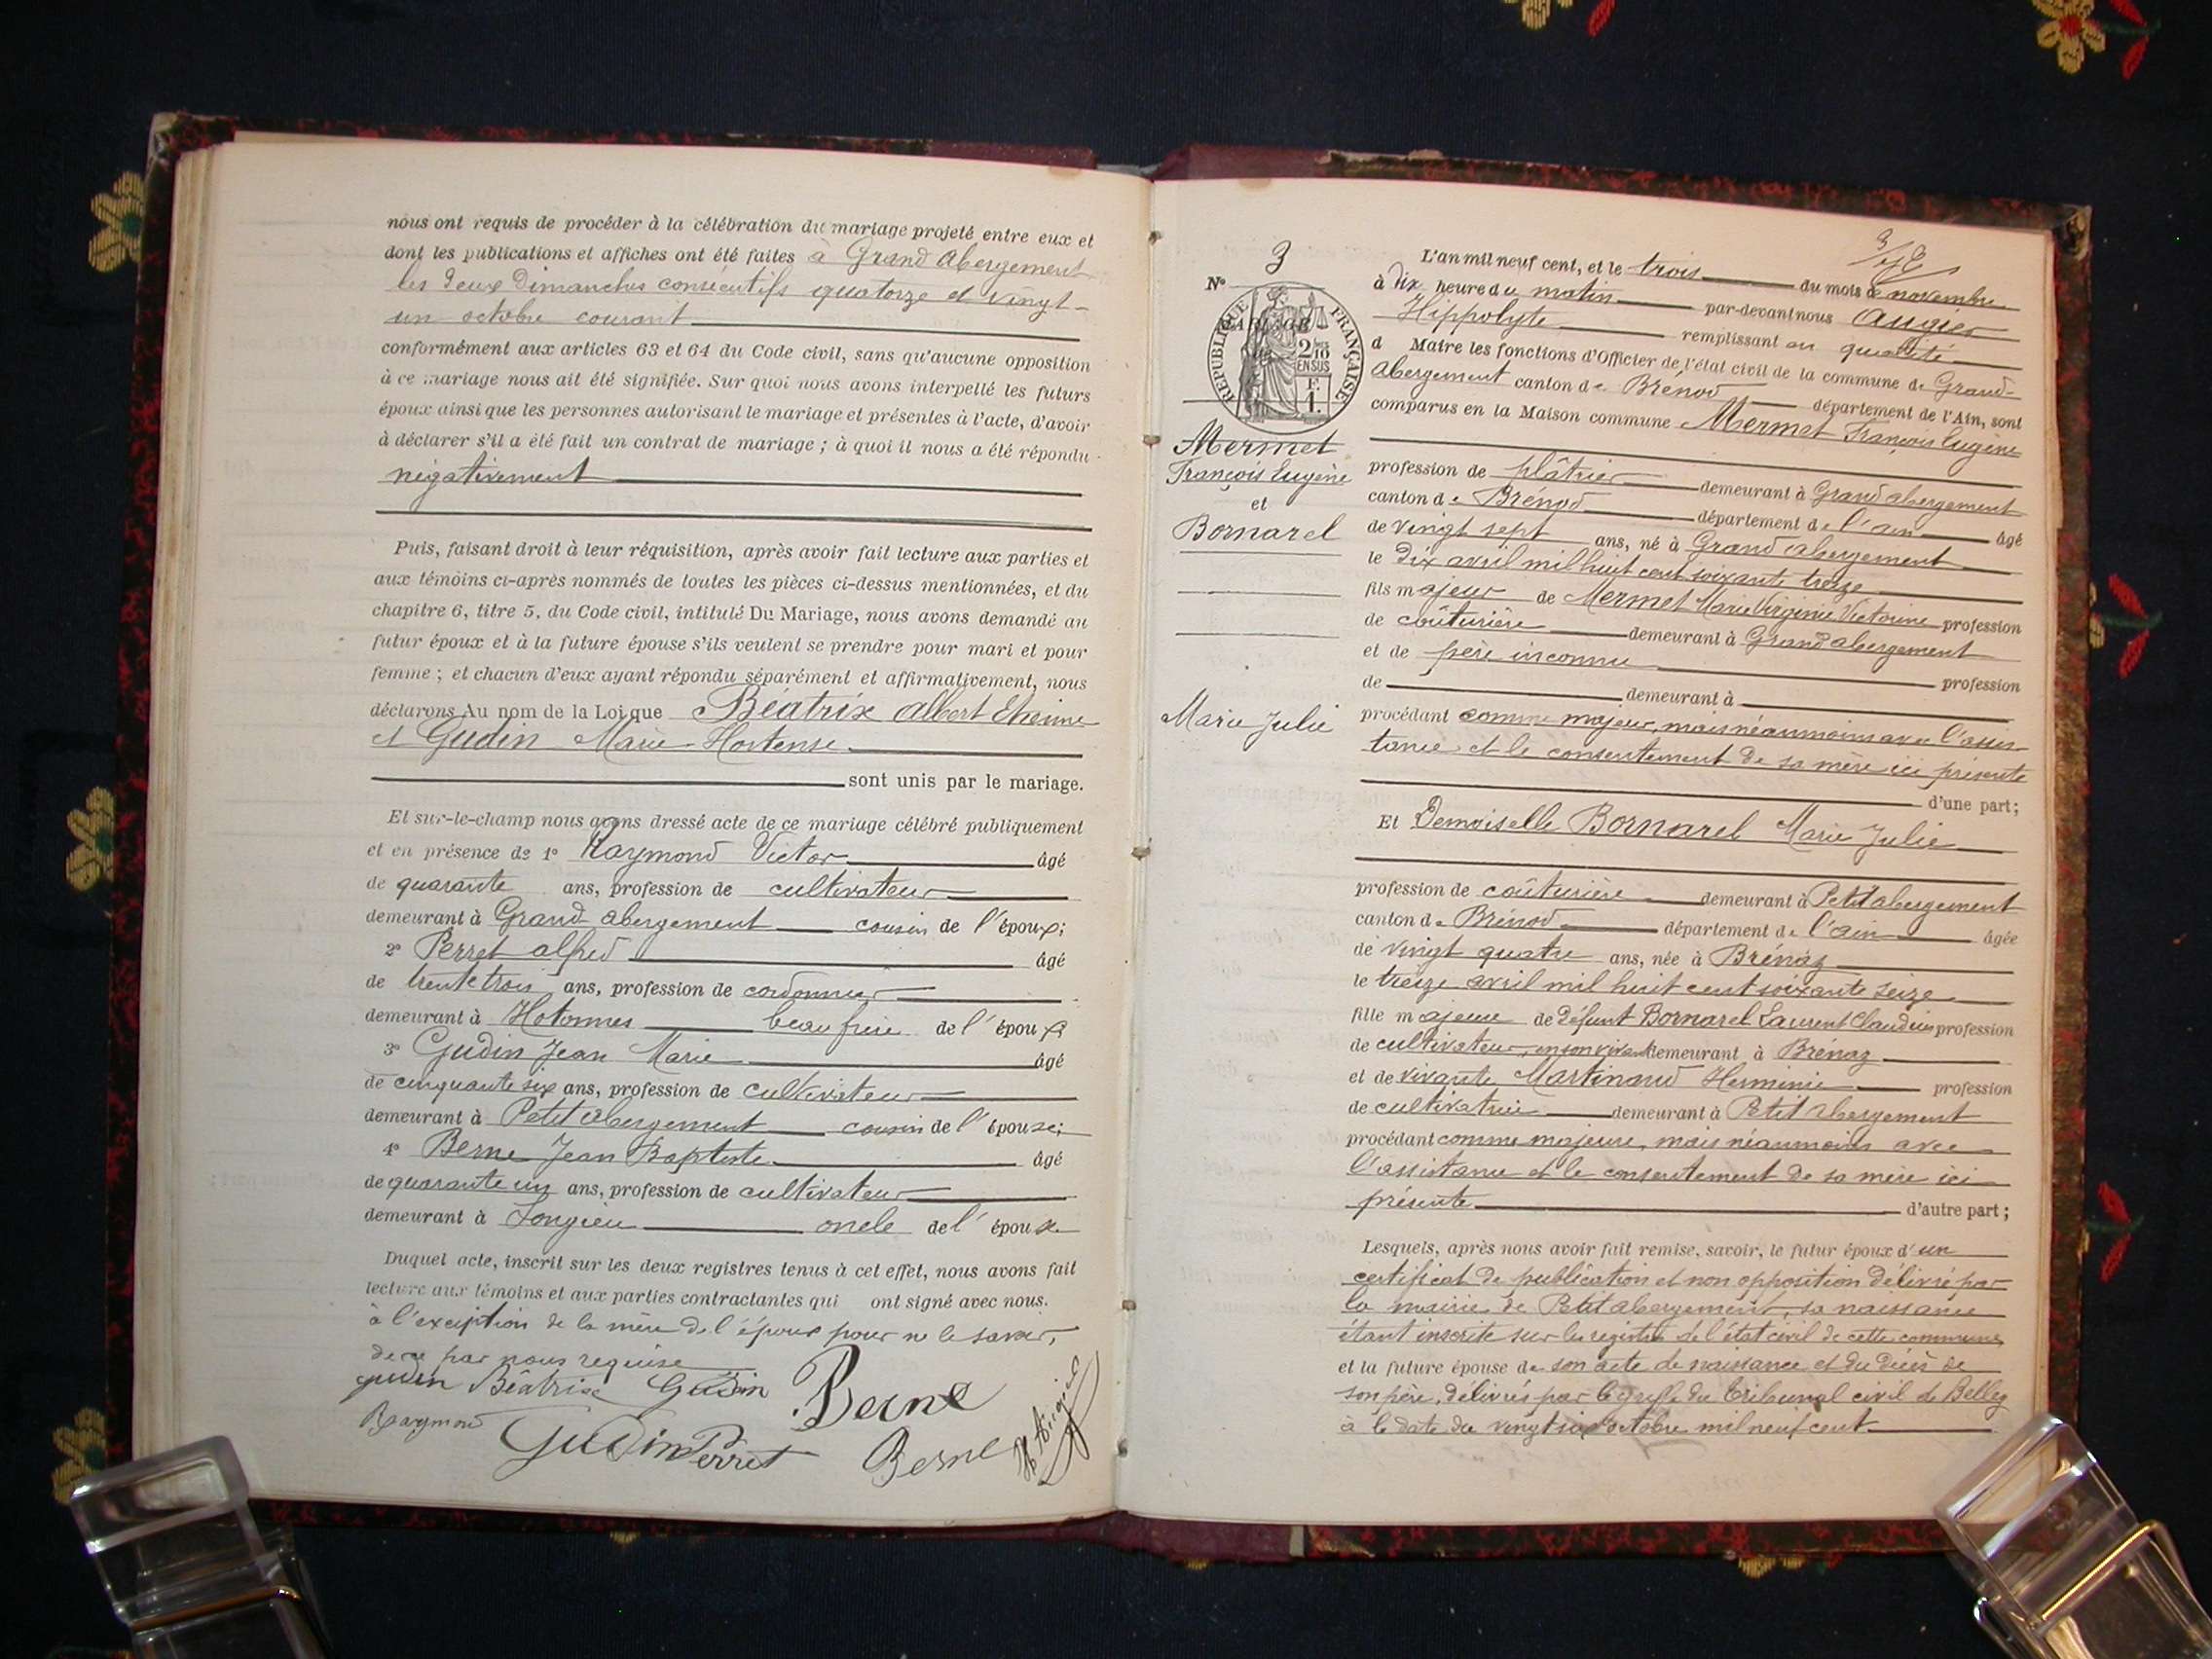 nous ont requis de procéder à la célébration du mariage projeté entre eux et
dont les publications et affiches ont été faites à Grand Abergement
les deux Dimanches consécutifs quatorze et vingt-
un octobre courant
conformément aux articles 63 et 64 du Code civil, sans qu'aucune opposition
à ce mariage nous ait été signifiée. Sur quoi nous avons interpellé les futurs
époux ainsi que les personnes autorisant le mariage et présentes à l'acte, d'avoir
à déclarer s'il a été fait un contrat de mariage ; à quoi il nous a été répondu
négativement
Puis, faisant droit à leur réquisition, après avoir fait lecture aux parties et
aux témoins ci-après nommés de toutes les pièces ci-dessus mentionnées, et du
chapitre 6, titre 5, du Code civil, intitulé Du Mariage, nous avons demandé au
futur époux et à la future épouse s'ils veulent se prendre pour mari et pour
femme ; et chacun d'eux ayant répondu séparément et affirmativement, nous
déclarons Au nom de la Loi que Béatrix Albert Etienne
et Gudin Marie Hortense
sont unis par le mariage.
Et sur-le-champ nous avons dressé acte de ce mariage célébré publiquement
et en présence de 1° Raymond Victor âgé
de quarante ans, profession de cultivateur
demeurant à Grand Abergement cousin de l'époux;
2° Perret alfred âgé
de trente trois ans, profession de cordonnier
demeurant à Hotonnes beau frère de l'époux
3° Gudin Jean Marie âgé
de cinquante six ans, profession de cultivateur
demeurant à Petit Abergement cousin de l'épouse;
4° Berne Jean Baptiste âgé
de quarante un ans, profession de cultivateur
demeurant à Songieu oncle de l'épouse
Duquel acte, inscrit sur les deux registres tenus à cet effet, nous avons fait
lecture aux témoins et aux parties contractantes qui ont signé avec nous.
à l'exception de la mère de l'époux pour ne le savoir,
de ce par nous requise
Gudin Béatrix Gudin Berne
Raymond Gudin Perret Berne H Augier
3
N°
MARIAGE
RÉPUBLIQUE FRANÇAISE
2/10
EN SUS
F.
1.
Mermet
François Eugène
et
Bornarel
Marie Julie
L'an mil neuf cent, et le trois du mois de novembre
à dix heure du matin par-devant nous Augier
Hippolyte remplissant en qualité
d Maire les fonctions d'Officier de l'état civil de la commune de Grand-
Abergement canton de Brénod département de l'Ain, sont
comparus en la Maison commune Mermet François Eugène
profession de plâtrier demeurant à Grand abergement
canton de Brénod département de l'ain âgé
de vingt sept ans, né à Grand Abergement
le dix avril mil huit cent soixante treize
fils majeur de Mermet Marie Virginie Victorine profession
de coûturière demeurant à Grand abergement
et de père inconnu profession
de demeurant à
procédant comme majeur, mais néanmoins avec l'assis
tance et le consentement de sa mère ici présente
d'une part;
Et Demoiselle Bornarel Marie Julie
profession de coûturière demeurant à Petit abergement
canton de Brénod département de l'ain âgée
de vingt quatre ans, née à Brénaz
le treize avril mil huit cent soixante seize
fille majeure de défunt Bornarel Laurent Claudius profession
de cultivateur, en son vivant demeurant à Brénaz
et de vivante Martinaud Herminie profession
de cultivatrice demeurant à Petit Abergement
procédant comme majeure, mais néanmoins avec
l'assistance et le consentement de sa mère ici
présente d'autre part;
Lesquels, après nous avoir fait remise, savoir, le futur époux d'un
certificat de publication et non opposition délivré par
la mairie de Petit abergement, sa naissance
étant inscrite sur les registres de l'état civil de cette commune
et la future épouse de son acte de naissance et du décès de
son père, délivrés par le greffe du Tribunal civil de Belley
à la date du vingt six octobre mil neuf cent